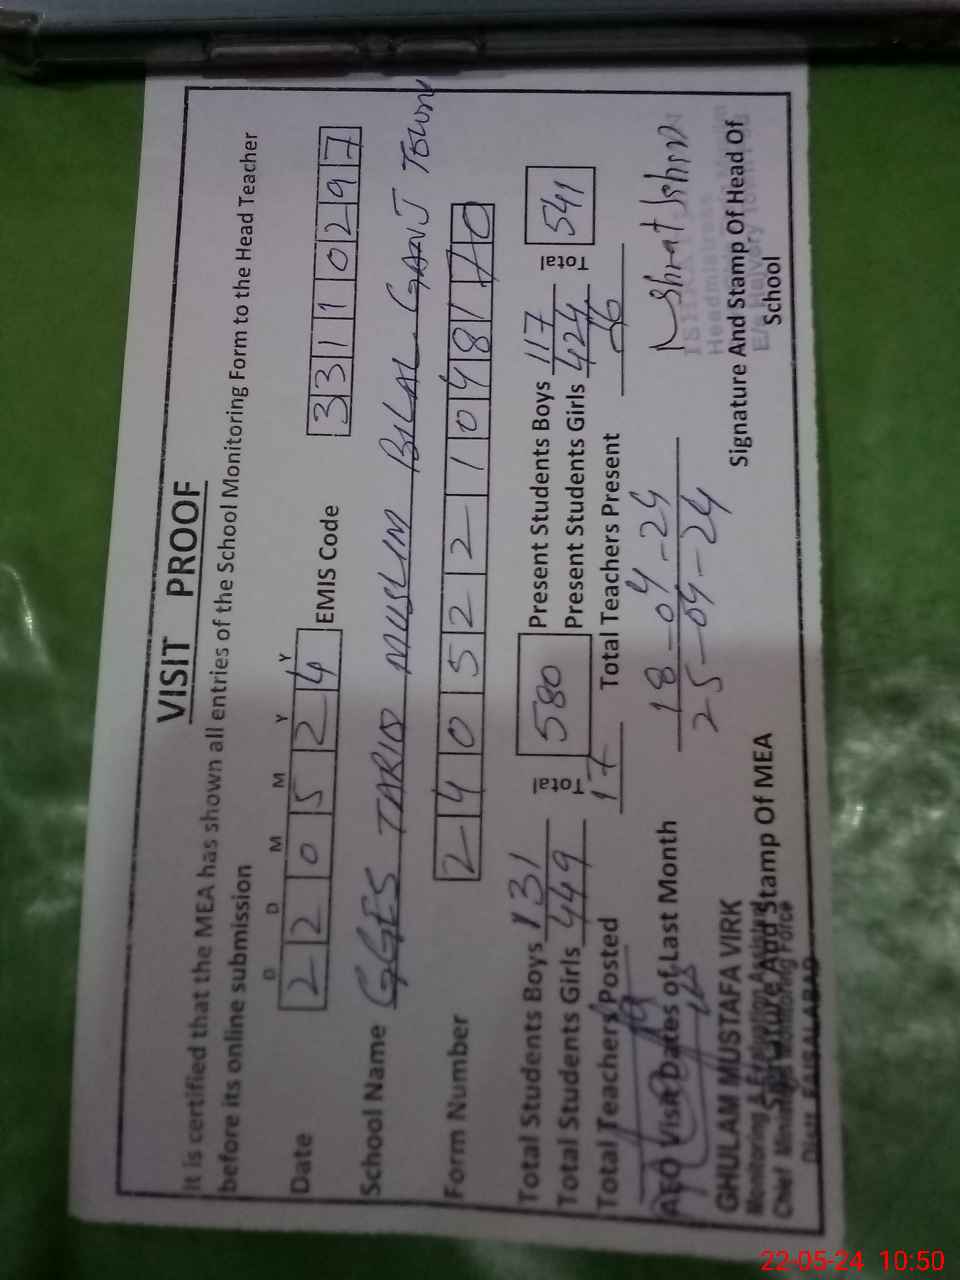 VISIT PROOF
It is certified that the MEA has shown all entries of the School Monitoring Form to the Head Teacher
before its online submission
D D M M Y Y
Date 2 2 0 5 2 4 EMIS Code 3 3 1 1 0 2 9 7
School Name GGES TARIQ MUSLIM BILAL GANJ TOWN
Form Number 2 4 0 5 2 2 1 0 4 8 1 0
Total Students Boys 131 Total 580 Present Students Boys 117 Total 541
Total Students Girls 449 Present Students Girls 424
Total Teachers Posted 17 Total Teachers Present
AEO Visit Dates of Last Month 18-04-24
25-04-24
GHULAM MUSTAFA VIRK
Monitoring & Evaluation Assistant
Signature And Stamp Of MEA
Chief Minister's Monitoring Force
Distt. FAISALABAD
Headmistress
Signature And Stamp Of Head Of
School
22-05-24 10:50